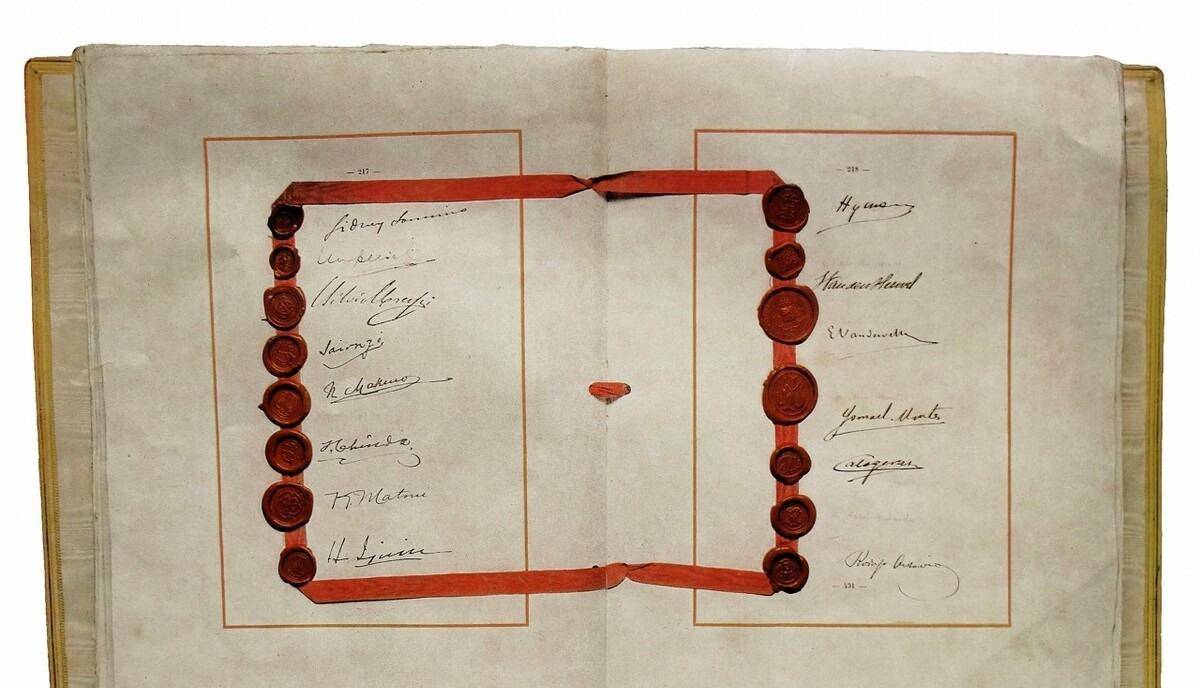 — 217 —
Sidney Sonnino
Imperiali
Silvio Crespi
Saionzi
N. Makino
S. Chinda.
K. Matsui
H Ijuin
— 218 —
Hymans
J Van den Heuvel
E Vandervelde
Ismael Montes
Calogeras
Rodrigo Octavio
— 431 —